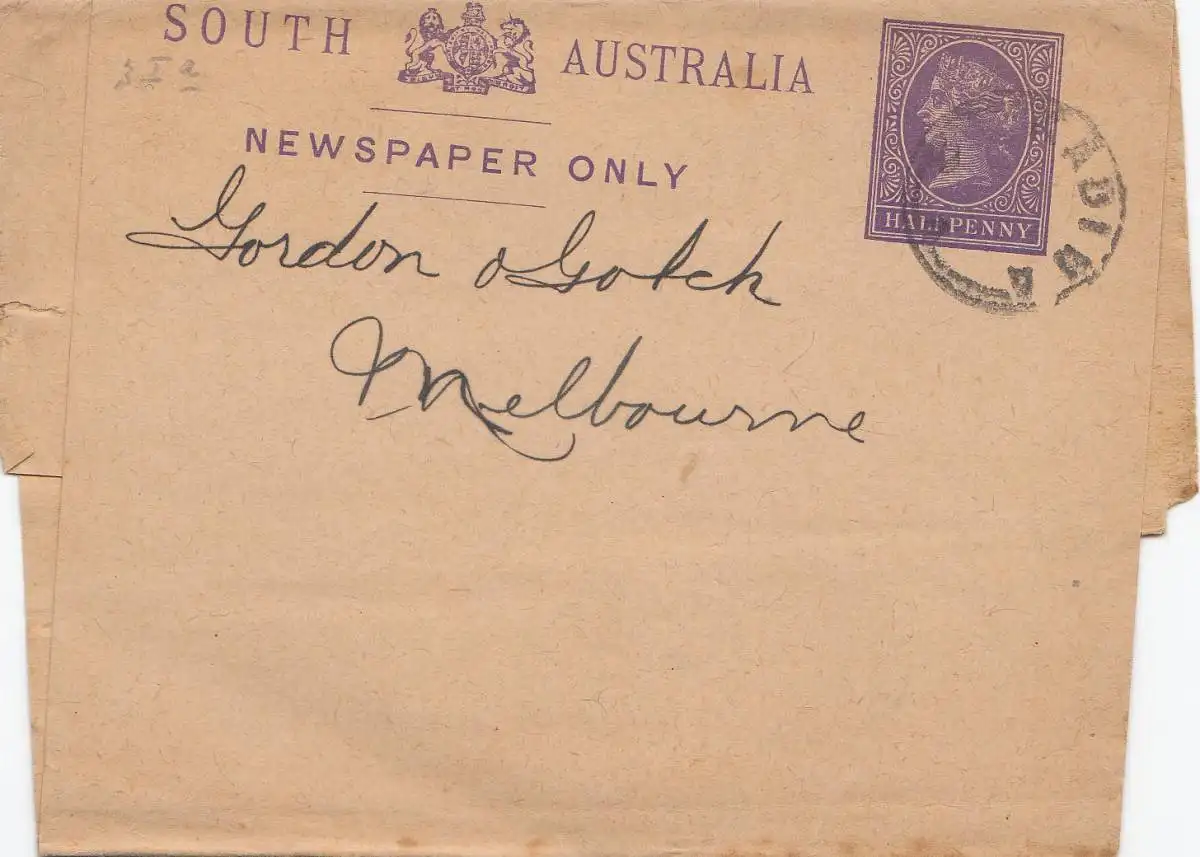 SOUTH AUSTRALIA
3 I a
NEWSPAPER ONLY
HALFPENNY
Gordon & Gotch
Melbourne